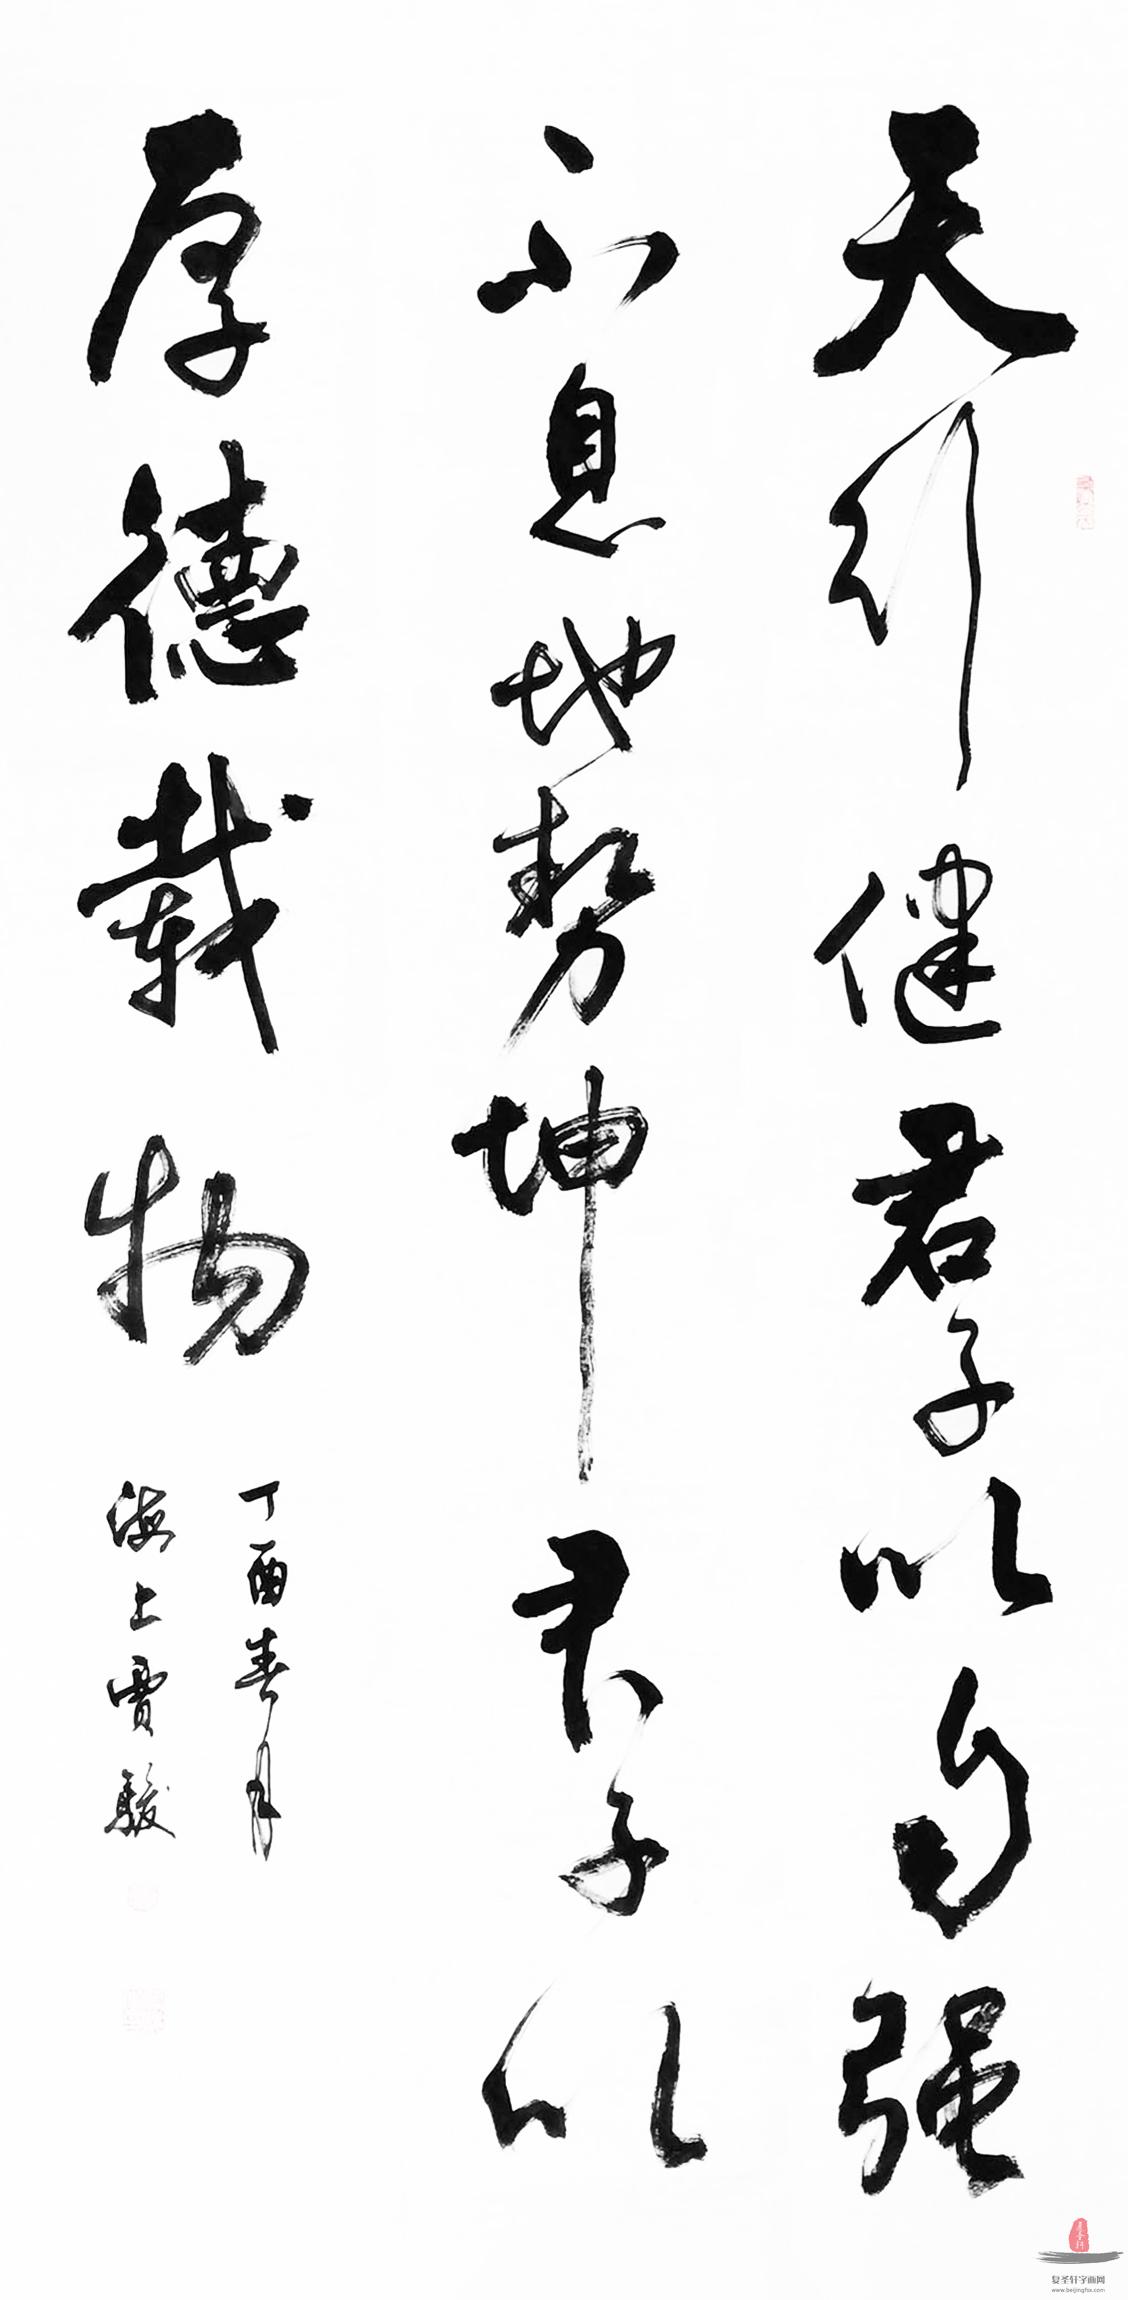 天行健君子以自强
不息地势坤君子以
厚德载物
丁酉春月
海上贾骏
复圣轩字画网
www.beijingfsx.com